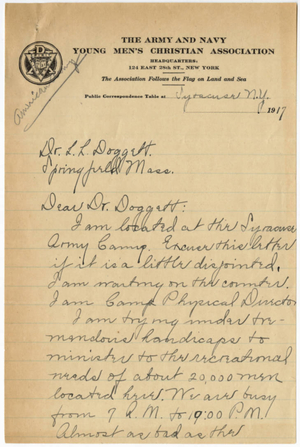 American Y
THE ARMY AND NAVY
YOUNG MEN'S CHRISTIAN ASSOCIATION
HEADQUARTERS:
124 EAST 28th ST., NEW YORK
The Association Follows the Flag on Land and Sea
Public Correspondence Table at Syracuse N.Y.
1917
Dr. L L Doggett.
Springfield Mass.
Dear Dr. Doggett:
I am located at the Syracuse
Army Camp. Excuse this letter
if it is a little disjointed,
I am writing on the counter.
I am Camp Physical Director
I am trying under tre-
mendous handicaps to
minister to the recreational
needs of about 20,000 men
located here. We are busy
from 7 A.M. to 10:00 P.M.
Almost as bad as the